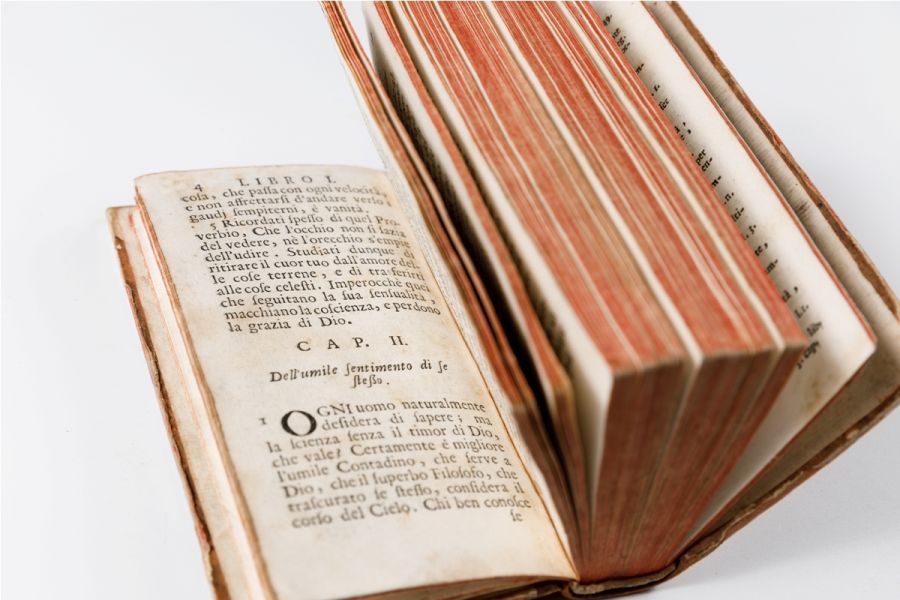 4 LIBRO I.
coſa, che paſſa con ogni velocità,
e non affrettarſi d'andare verſo i
gaudj ſempiterni, è vanità.
5 Ricordati ſpeſſo di quel Pro-
verbio, Che l'occhio non ſi ſazia
del vedere, nè l'orecchio s'empie
dell'udire. Studiati dunque di
ritirare il cuor tuo dall'amore del-
le coſe terrene, e di trasferirti
alle coſe celeſti. Imperocchè quei
che ſeguitano la ſua ſenſualità,
macchiano la coſcienza, e perdono
la grazia di Dio.
CAP. II.
Dell'umile ſentimento di ſe
ſteſſo.
1 OGNI uomo naturalmente
deſidera di ſapere; ma
la ſcienza ſenza il timor di Dio,
che vale? Certamente è migliore
l'umile Contadino, che ſerve a
Dio, che il ſuperbo Filoſofo, che
traſcurato ſe ſteſſo, conſidera il
corſo del Cielo. Chi ben conoſce
ſe